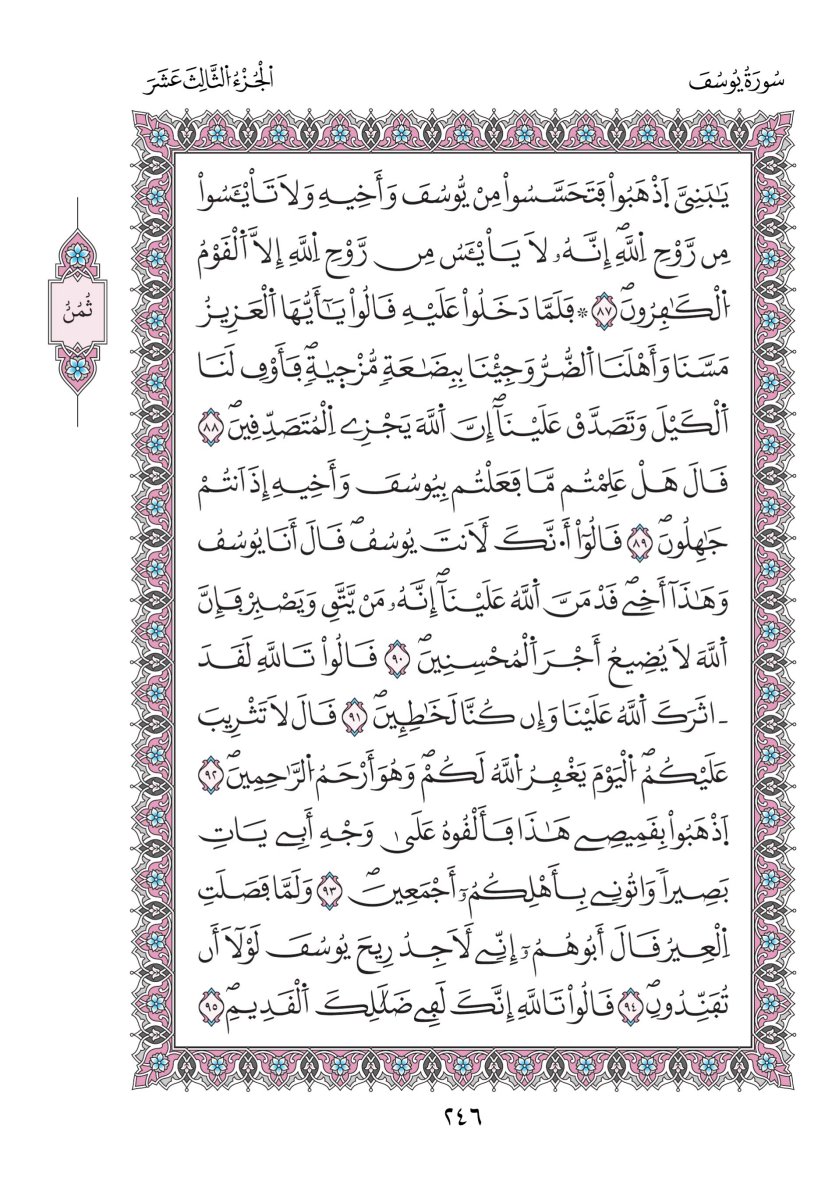 سُورَةُ يُوسُفَ
اَلْجُزْءُ اَلثَّالِثَ عَشَرَ
يَٰبَنِيَّ اَ۪ذْهَبُواْ فَتَحَسَّسُواْ مِنْ يُّوسُفَ وَأَخِيهِ وَلَا تَاْيْـَٔسُواْ
مِن رَّوْحِ اِ۬للَّهِۖ إِنَّهُۥ لَا يَاْيْـَٔسُ مِن رَّوْحِ اِ۬للَّهِ إِلَّا اَ۬لْقَوْمُ
اُ۬لْكَٰفِرُونَۖ ٨٧ ۞ فَلَمَّا دَخَلُواْ عَلَيْهِ قَالُواْ يَٰٓأَيُّهَا اَ۬لْعَزِيزُ
مَسَّنَا وَأَهْلَنَا اَ۬لضُّرُّ وَجِئْنَا بِبِضَٰعَةٖ مُّزْج۪يٰةٖۖ فَأَوْفِ لَنَا
اَ۬لْكَيْلَ وَتَصَدَّقْ عَلَيْنَآۖ إِنَّ اَ۬للَّهَ يَجْزِے اِ۬لْمُتَصَدِّقِينَۖ ٨٨
قَالَ هَلْ عَلِمْتُم مَّا فَعَلْتُم بِيُوسُفَ وَأَخِيهِ إِذَ اَنتُمْ
جَٰهِلُونَۖ ٨٩ قَالُوٓاْ أَ۟نَّكَ لَأَنتَ يُوسُفُۖ قَالَ أَنَا يُوسُفُ
وَهَٰذَآ أَخِےۖ قَدْ مَنَّ اَ۬للَّهُ عَلَيْنَآۖ إِنَّهُۥ مَنْ يَّتَّقِ وَيَصْبِرْ فَإِنَّ
اَ۬للَّهَ لَا يُضِيعُ أَجْرَ اَ۬لْمُحْسِنِينَۖ ٩٠ قَالُواْ تَاللَّهِ لَقَدَ
ـ اثَرَكَ اَ۬للَّهُ عَلَيْنَا وَإِن كُنَّا لَخَٰطِـِٕينَۖ ٩١ قَالَ لَا تَثْرِيبَ
عَلَيْكُمُۖ اُ۬لْيَوْمَ يَغْفِرُ اُ۬للَّهُ لَكُمْۖ وَهُوَ أَرْحَمُ اُ۬لرَّٰحِمِينَۖ ٩٢
اَ۪ذْهَبُواْ بِقَمِيصِے هَٰذَا فَأَلْقُوهُ عَلَىٰ وَجْهِ أَبِے يَاتِ
بَصِيراٗ وَاتُونِے بِأَهْلِكُمُۥٓ أَجْمَعِينَۖ ٩٣ وَلَمَّا فَصَلَتِ
اِ۬لْعِيرُ قَالَ أَبُوهُمُۥٓ إِنِّے لَأَجِدُ رِيحَ يُوسُفَ لَوْلَآ أَن
تُفَنِّدُونِۖ ٩٤ قَالُواْ تَاللَّهِ إِنَّكَ لَفِے ضَلَٰلِكَ اَ۬لْقَدِيمِۖ ٩٥
ثُمُنُ
٢٤٦